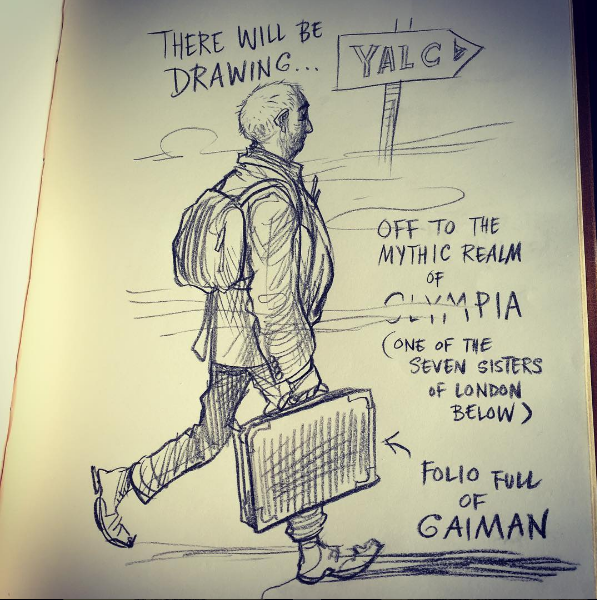 THERE WILL BE
DRAWING...
YALC
OFF TO THE
MYTHIC REALM
OF
OLYMPIA
(ONE OF THE
SEVEN SISTERS
OF LONDON
BELOW)
FOLIO FULL
OF
GAIMAN